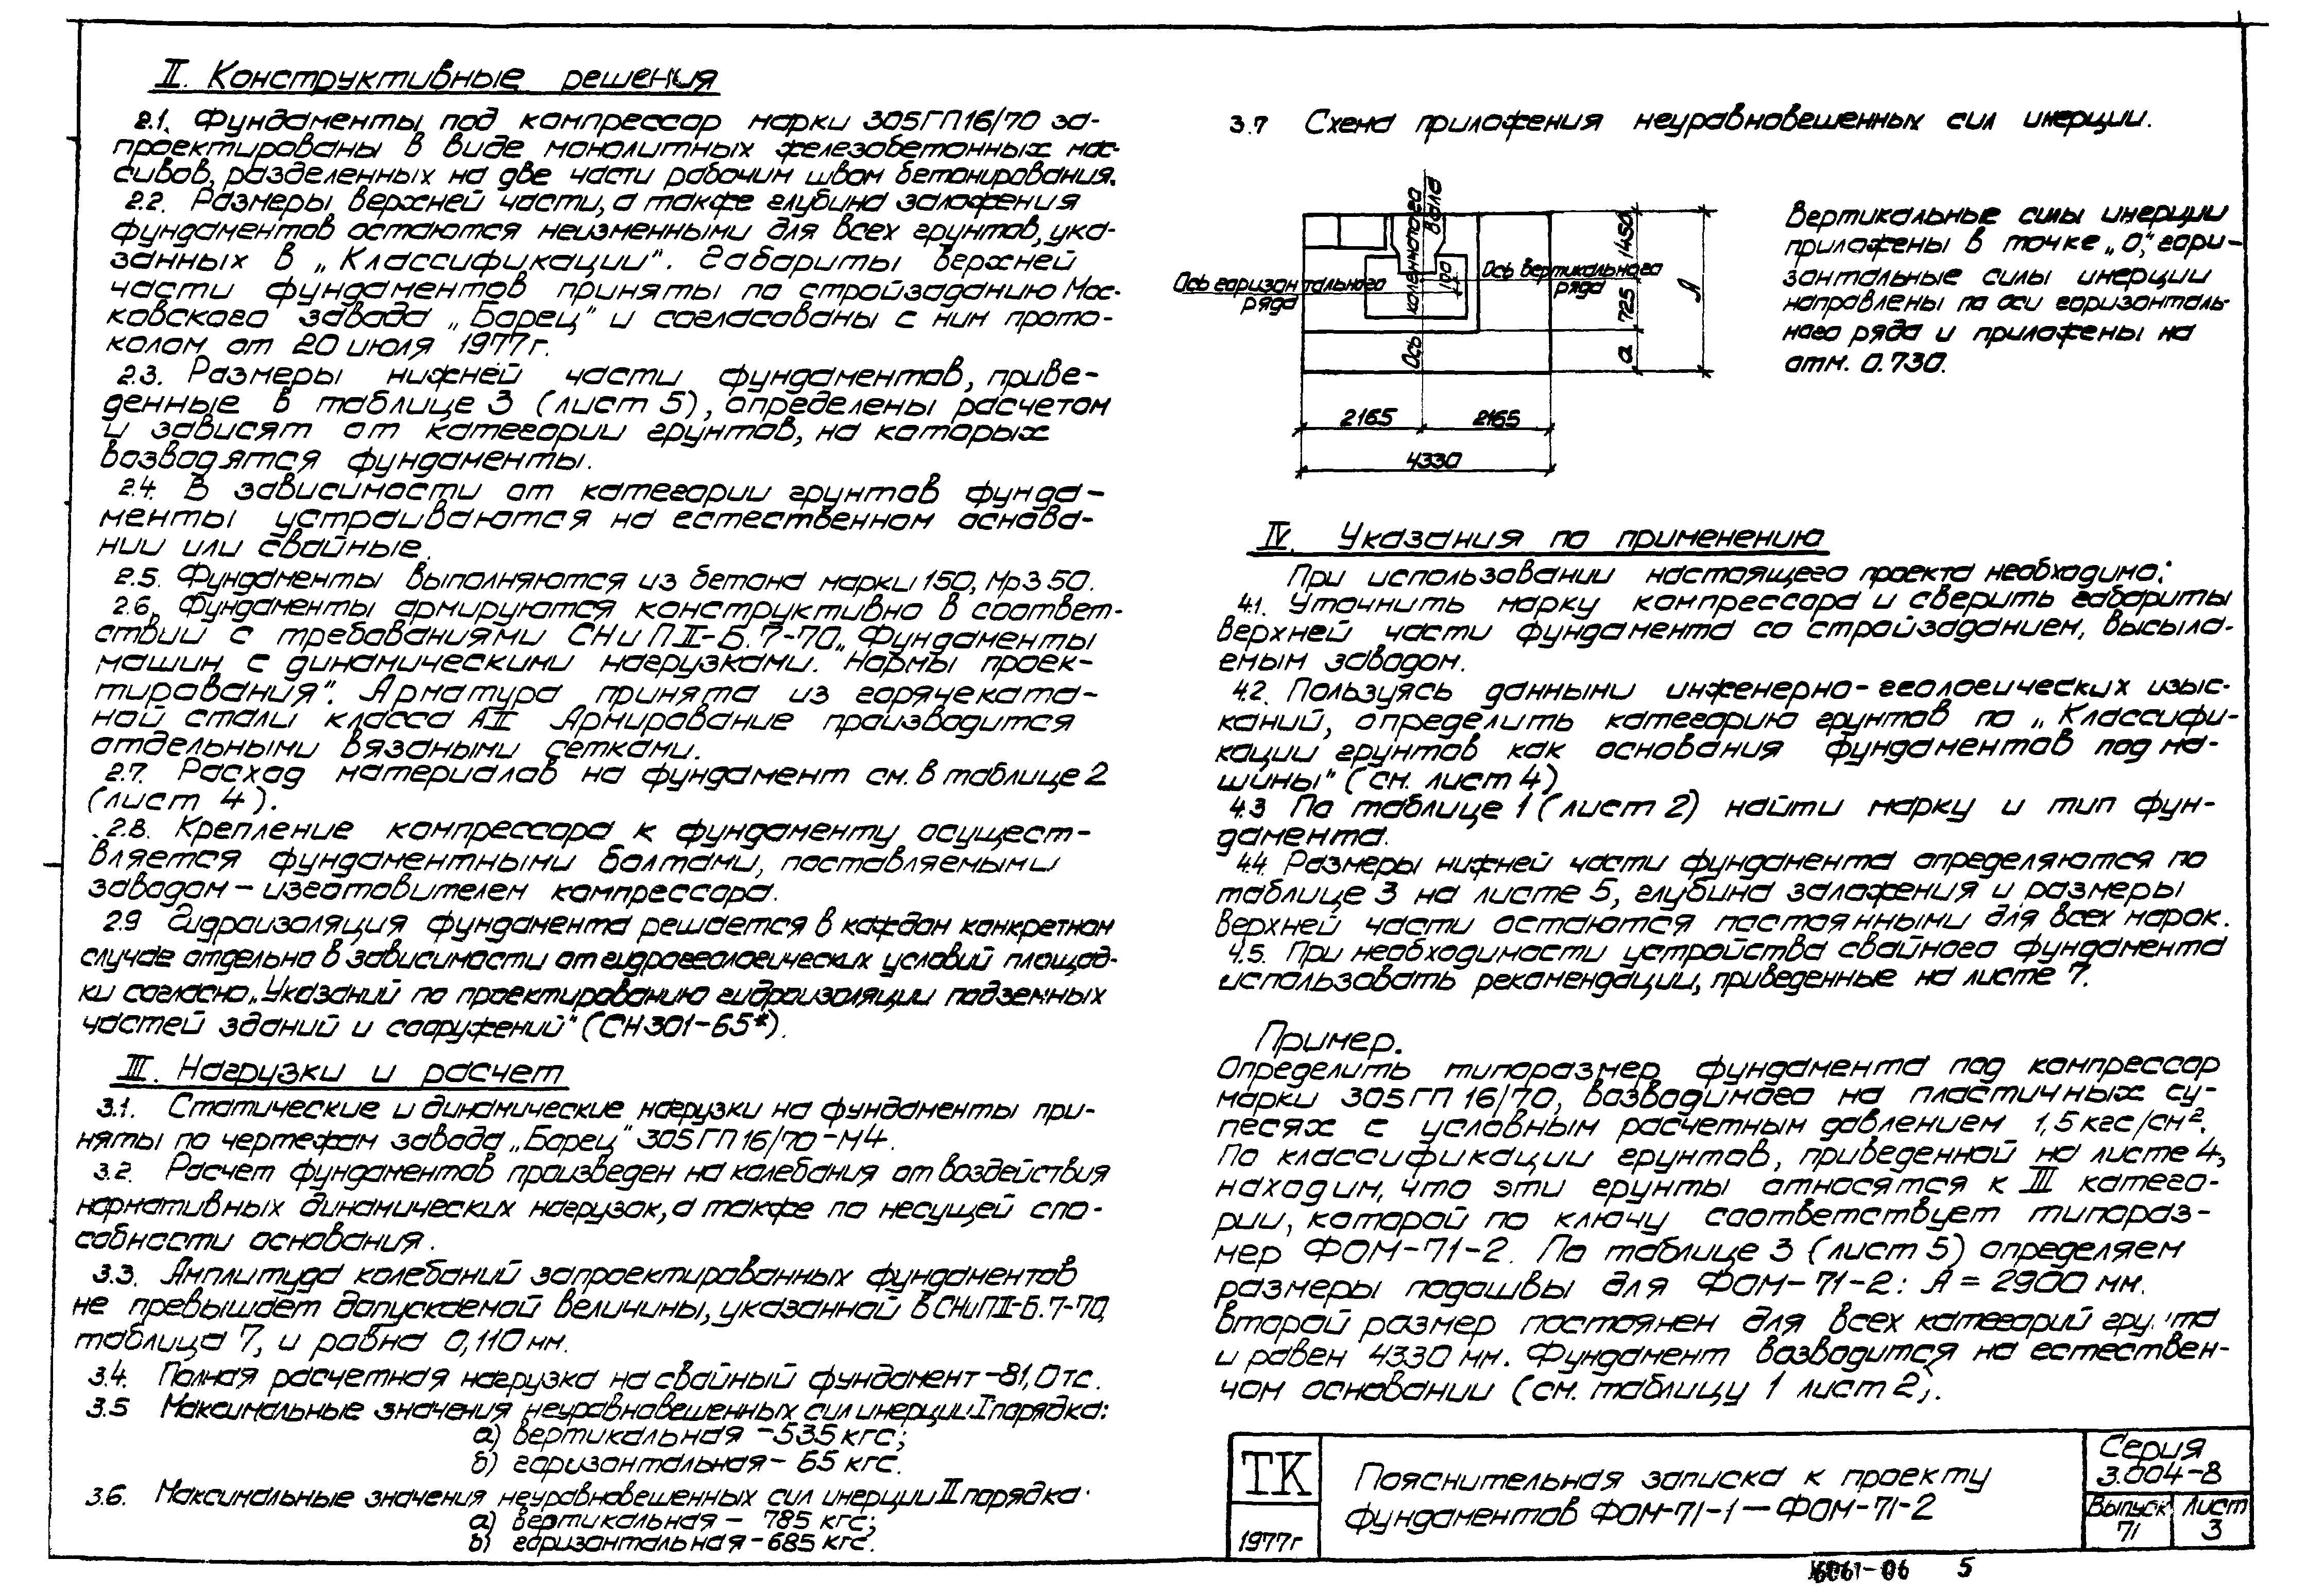 II. Конструктивные решения
2.1. Фундаменты под компрессор марки 305ГП16/70 за-
проектированы в виде монолитных железобетонных мас-
сивов, разделенных на две части рабочим швом бетонирования.
2.2. Размеры верхней части, а также глубина заложения
фундаментов остаются неизменными для всех грунтов, ука-
занных в „Классификации". Габариты верхней
части фундаментов приняты по стройзаданию Мос-
ковского завода „Борец" и согласованы с ним прото-
колом от 20 июля 1977г.
2.3. Размеры нижней части фундаментов, приве-
денные в таблице 3 (лист 5), определены расчетом
и зависят от категории грунтов, на которых
возводятся фундаменты.
2.4. В зависимости от категории грунтов фунда-
менты устраиваются на естественном основа-
нии или свайные.
2.5. Фундаменты выполняются из бетона марки 150, Мрз 50.
2.6. Фундаменты армируются конструктивно в соответ-
ствии с требованиями СНиП II-Б.7-70 „Фундаменты
машин с динамическими нагрузками. Нормы проек-
тирования". Арматура принята из горячеката-
ной стали класса АII Армирование производится
отдельными вязаными сетками.
2.7. Расход материалов на фундамент см. в таблице 2
(лист 4).
2.8. Крепление компрессора к фундаменту осущест-
вляется фундаментными болтами, поставляемыми
заводом - изготовителем компрессора.
2.9 Гидроизоляция фундамента решается в каждом конкретном
случае отдельно в зависимости от гидрогеологических условий площад-
ки согласно „Указаний по проектированию гидроизоляции подземных
частей зданий и сооружений" (СН301-65*).
III. Нагрузки и расчет
3.1. Статические и динамические нагрузки на фундаменты при-
няты по чертежам завода „Борец" 305ГП16/70-М4.
3.2. Расчет фундаментов произведен на колебания от воздействия
нормативных динамических нагрузок, а также по несущей спо-
собности основания.
3.3. Амплитуда колебаний запроектированных фундаментов
не превышает допускаемой величины, указанной в СНиПII-Б.7-70,
таблица 7, и равна 0,110 мм.
3.4. Полная расчетная нагрузка на свайный фундамент-81,0тс.
3.5 Максимальные значения неуравновешенных сил инерции I порядка:
а) вертикальная - 535 кгс;
б) горизонтальная - 65 кгс.
3.6. Максимальные значения неуравновешенных сил инерции II порядка.
а) вертикальная - 785 кгс;
б) горизонтальная - 685 кгс.
3.7 Схема приложения неуравновешенных сил инерции.
Ось коленчатого
вала
Ось горизонтального
ряда
Ось вертикального
ряда
100
1450
725
а
А
2165
2165
4330
Вертикальные силы инерции
приложены в точке „О", гори-
зонтальные силы инерции
направлены по оси горизонталь-
ного ряда и приложены на
отм. 0.730.
IV. Указания по применению
При использовании настоящего проекта необходимо:
4.1. Уточнить марку компрессора и сверить габариты
верхней части фундамента со стройзаданием, высыла-
емым заводом.
4.2. Пользуясь данными инженерно-геологических изыс-
каний, определить категорию грунтов по „Классифи-
кации грунтов как основания фундаментов под ма-
шины" (см. лист 4)
4.3 По таблице 1 (лист 2) найти марку и тип фун-
дамента.
4.4. Размеры нижней части фундамента определяются по
таблице 3 на листе 5, глубина заложения и размеры
верхней части остаются постоянными для всех марок.
4.5. При необходимости устройства свайного фундамента
использовать рекомендации, приведенные на листе 7.
Пример.
Определить типоразмер фундамента под компрессор
марки 305ГП 16/70, возводимого на пластичных су-
песях с условным расчетным давлением 1,5 кгс/см².
По классификации грунтов, приведенной на листе 4,
находим, что эти грунты относятся к III катего-
рии, которой по ключу соответствует типораз-
мер ФОМ-71-2. По таблице 3 (лист 5) определяем
размеры подошвы для ФОМ-71-2: А = 2900 мм.
второй размер постоянен для всех категорий грунта
и равен 4330 мм. Фундамент возводится на естествен-
ном основании (см. таблицу 1 лист 2).
ТК
1977г
Пояснительная записка к проекту
фундаментов ФОМ-71-1 — ФОМ-71-2
Серия
3.004-8
Выпуск
71
Лист
3
16061-06 5